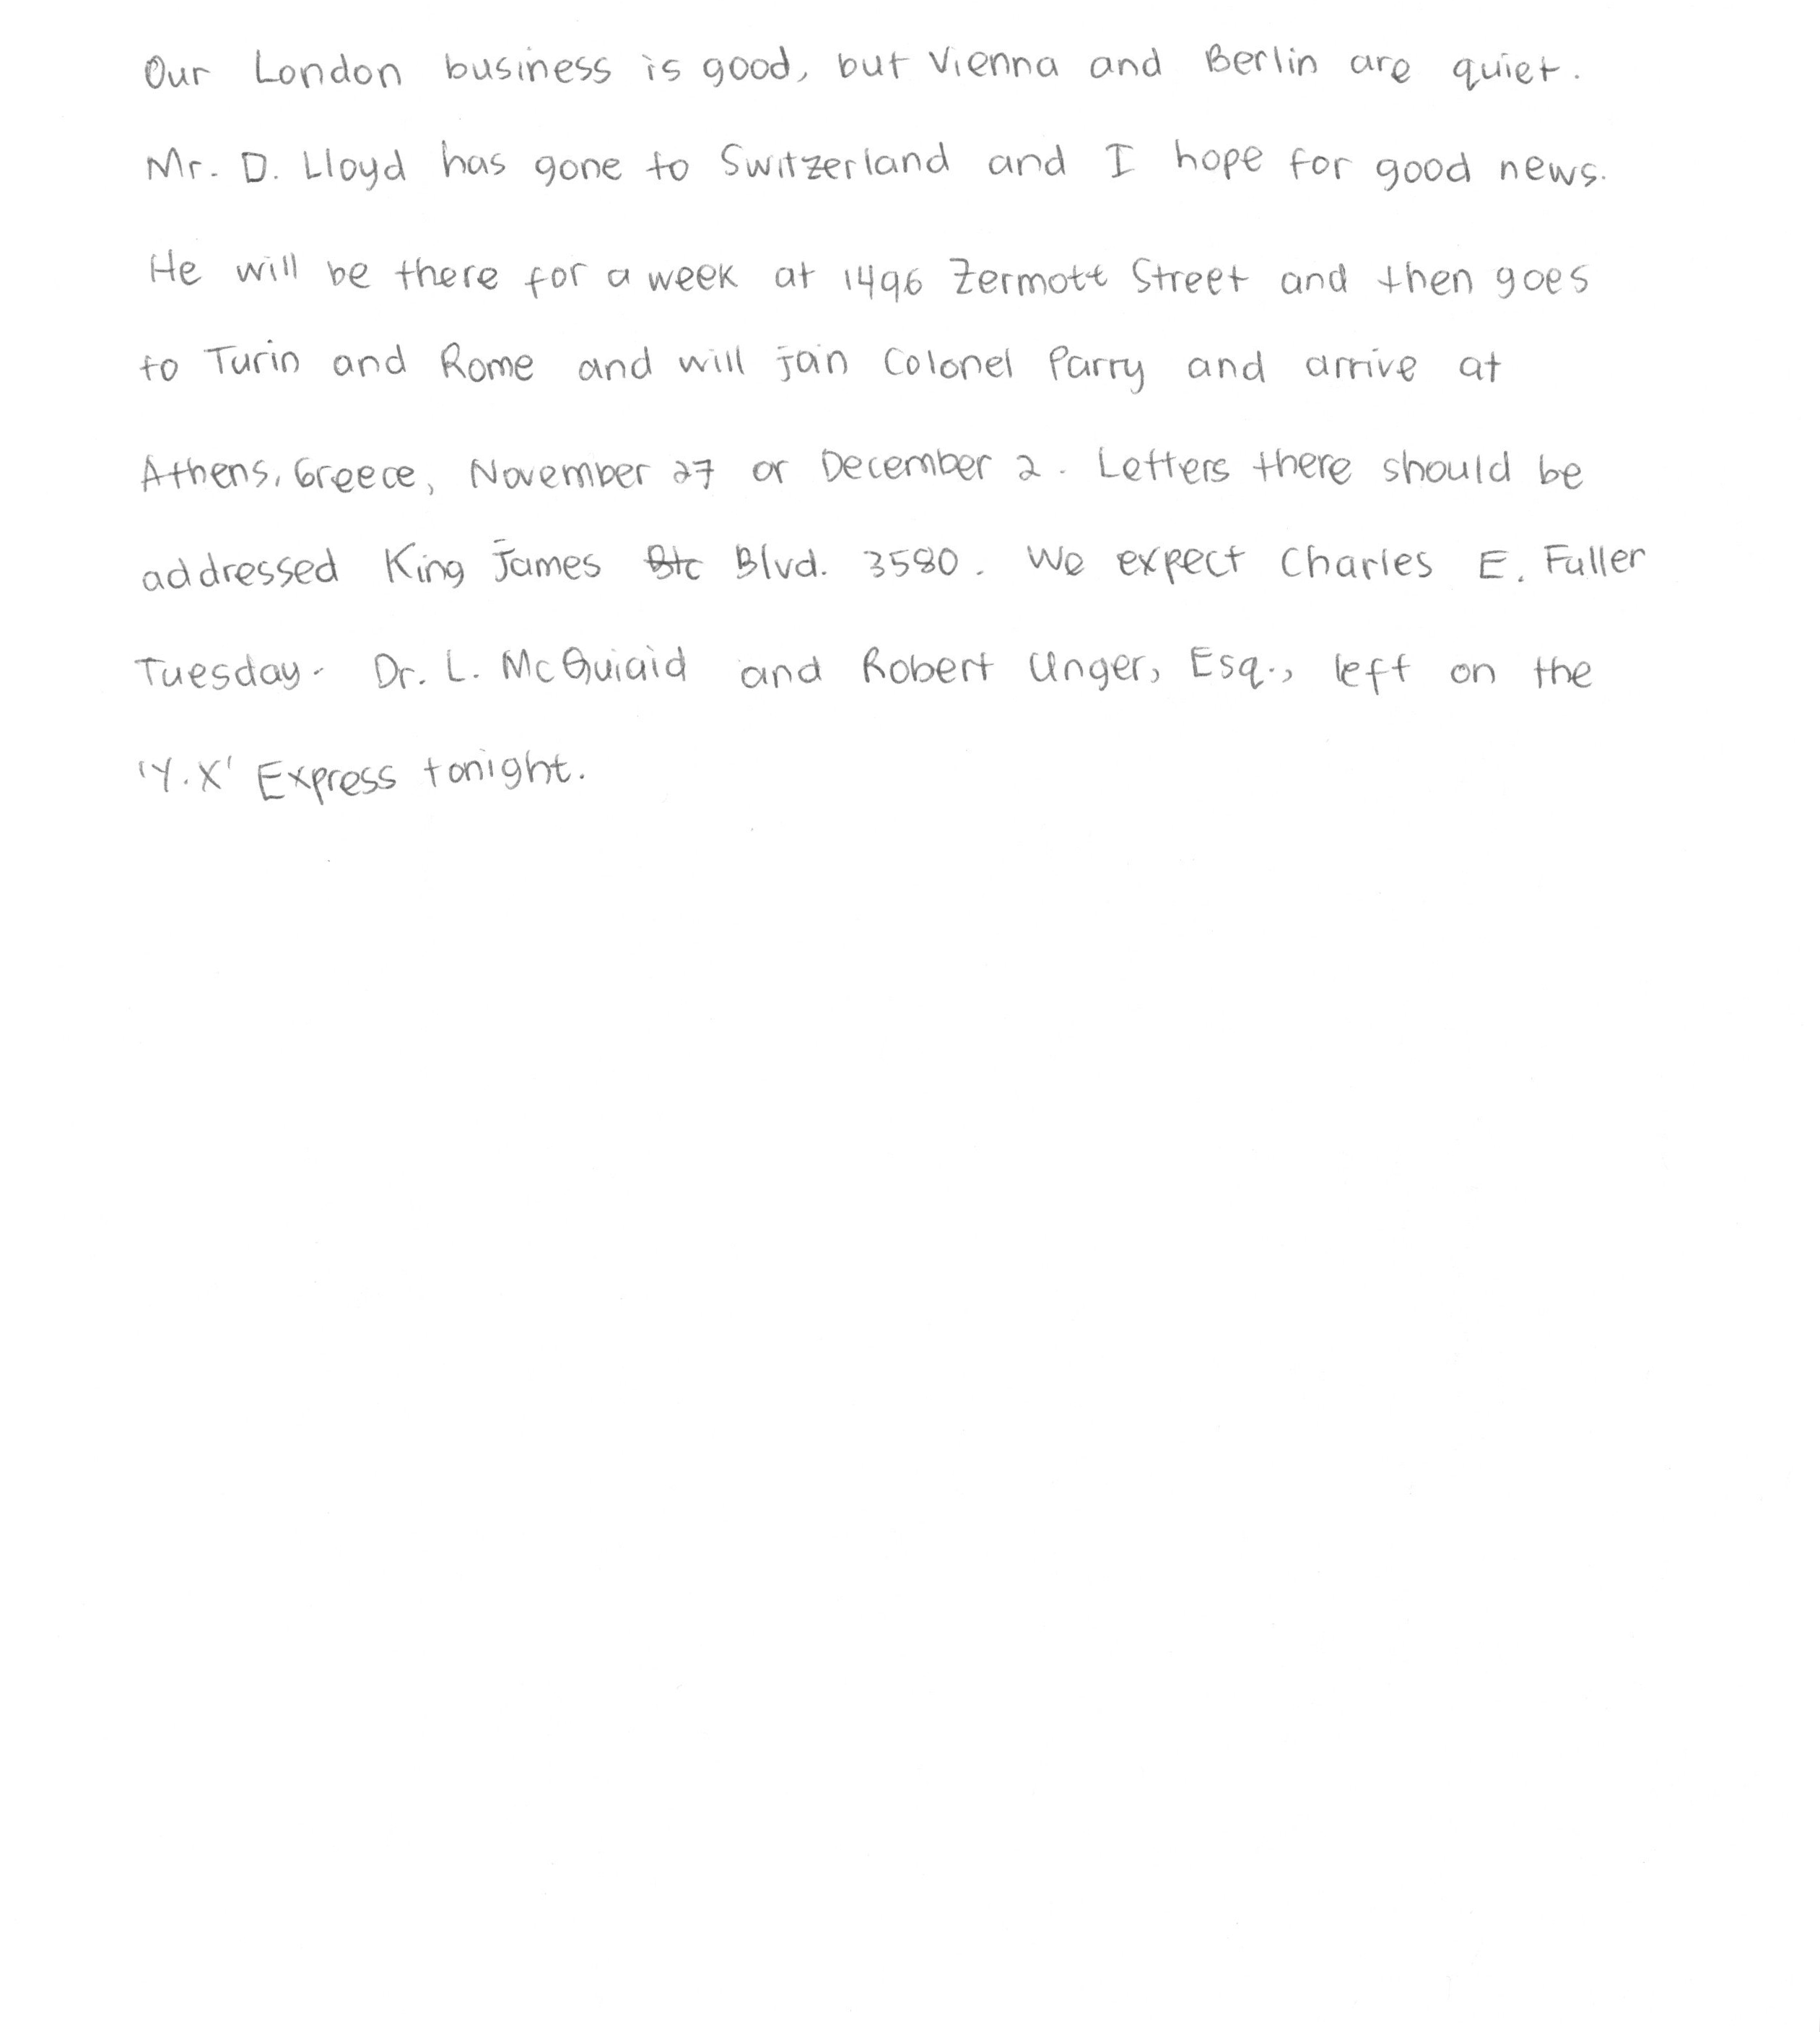 Our London business is good, but Vienna and Berlin are quiet.
Mr. D. Lloyd has gone to Switzerland and I hope for good news.
He will be there for a week at 1496 Zermott Street and then goes
to Turin and Rome and will join Colonel Parry and arrive at
Athens, Greece, November 27 or December 2. Letters there should be
addressed King James Blvd. 3580. We expect Charles E. Fuller
Tuesday. Dr. L. McQuiaid and Robert Unger, Esq., left on the
'Y.X' Express tonight.